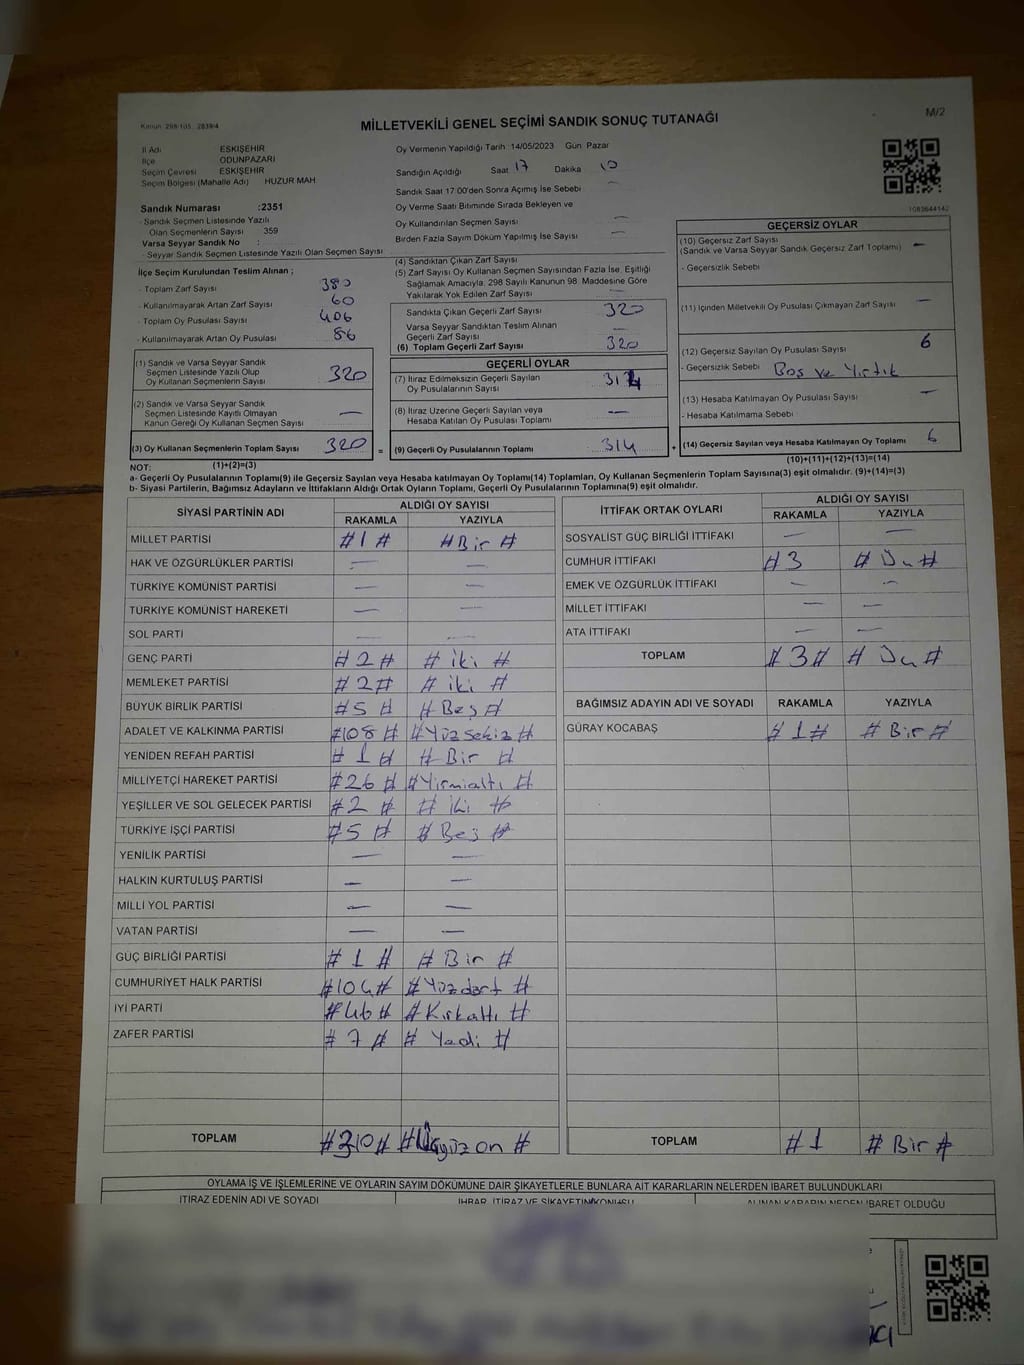 Kanun: 298/105, 2839/4
MİLLETVEKİLİ GENEL SEÇİMİ SANDIK SONUÇ TUTANAĞI
M/2
İl Adı ESKİŞEHİR
İlçe ODUNPAZARI
Seçim Çevresi ESKİŞEHİR
Seçim Bölgesi (Mahalle Adı) HUZUR MAH.
Oy Vermenin Yapıldığı Tarih 14/05/2023 Gün Pazar
Sandığın Açıldığı Saat 17 Dakika 10
Sandık Saat 17:00'den Sonra Açılmış İse Sebebi —
Oy Verme Saati Bitiminde Sırada Bekleyen ve
Oy Kullandırılan Seçmen Sayısı —
Birden Fazla Sayım Döküm Yapılmış İse Sayısı —
1083644142
Sandık Numarası :2351
- Sandık Seçmen Listesinde Yazılı
Olan Seçmenlerin Sayısı 359
Varsa Seyyar Sandık No :
- Seyyar Sandık Seçmen Listesinde Yazılı Olan Seçmen Sayısı
İlçe Seçim Kurulundan Teslim Alınan ;
- Toplam Zarf Sayısı 380
- Kullanılmayarak Artan Zarf Sayısı 60
- Toplam Oy Pusulası Sayısı 406
- Kullanılmayarak Artan Oy Pusulası 86
(1) Sandık ve Varsa Seyyar Sandık
Seçmen Listesinde Yazılı Olup
Oy Kullanan Seçmenlerin Sayısı 320
(2) Sandık ve Varsa Seyyar Sandık
Seçmen Listesinde Kayıtlı Olmayan
Kanun Gereği Oy Kullanan Seçmen Sayısı —
(3) Oy Kullanan Seçmenlerin Toplam Sayısı 320 =
(4) Sandıktan Çıkan Zarf Sayısı
(5) Zarf Sayısı Oy Kullanan Seçmen Sayısından Fazla İse, Eşitliği
Sağlamak Amacıyla, 298 Sayılı Kanunun 98. Maddesine Göre
Yakılarak Yok Edilen Zarf Sayısı —
Sandıkta Çıkan Geçerli Zarf Sayısı 320
Varsa Seyyar Sandıktan Teslim Alınan
Geçerli Zarf Sayısı —
(6) Toplam Geçerli Zarf Sayısı 320
GEÇERLİ OYLAR
(7) İtiraz Edilmeksizin Geçerli Sayılan
Oy Pusulalarının Sayısı 314
(8) İtiraz Üzerine Geçerli Sayılan veya
Hesaba Katılan Oy Pusulası Toplamı —
(9) Geçerli Oy Pusulalarının Toplamı 314 +
GEÇERSİZ OYLAR
(10) Geçersiz Zarf Sayısı
(Sandık ve Varsa Seyyar Sandık Geçersiz Zarf Toplamı) —
- Geçersizlik Sebebi
(11) İçinden Milletvekili Oy Pusulası Çıkmayan Zarf Sayısı —
(12) Geçersiz Sayılan Oy Pusulası Sayısı 6
- Geçersizlik Sebebi Boş ve Yırtık
(13) Hesaba Katılmayan Oy Pusulası Sayısı —
- Hesaba Katılmama Sebebi
(14) Geçersiz Sayılan veya Hesaba Katılmayan Oy Toplamı 6
NOT: (1)+(2)=(3)
(10)+(11)+(12)+(13)=(14)
a- Geçerli Oy Pusulalarının Toplamı(9) ile Geçersiz Sayılan veya Hesaba katılmayan Oy Toplamı(14) Toplamları, Oy Kullanan Seçmenlerin Toplam Sayısına(3) eşit olmalıdır. (9)+(14)=(3)
b- Siyasi Partilerin, Bağımsız Adayların ve İttifakların Aldığı Ortak Oyların Toplamı, Geçerli Oy Pusulalarının Toplamına(9) eşit olmalıdır.
SİYASİ PARTİNİN ADI ALDIĞI OY SAYISI
RAKAMLA YAZIYLA
MİLLET PARTİSİ #1# #Bir#
HAK VE ÖZGÜRLÜKLER PARTİSİ — —
TÜRKİYE KOMÜNİST PARTİSİ — —
TÜRKİYE KOMÜNİST HAREKETİ — —
SOL PARTİ — —
GENÇ PARTİ #2# #iki#
MEMLEKET PARTİSİ #2# #iki#
BÜYÜK BİRLİK PARTİSİ #5# #Beş#
ADALET VE KALKINMA PARTİSİ #108# #Yüzsekiz#
YENİDEN REFAH PARTİSİ #1# #Bir#
MİLLİYETÇİ HAREKET PARTİSİ #26# #Yirmialtı#
YEŞİLLER VE SOL GELECEK PARTİSİ #2# #iki#
TÜRKİYE İŞÇİ PARTİSİ #5# #Beş#
YENİLİK PARTİSİ — —
HALKIN KURTULUŞ PARTİSİ — —
MİLLİ YOL PARTİSİ — —
VATAN PARTİSİ — —
GÜÇ BİRLİĞİ PARTİSİ #1# #Bir#
CUMHURİYET HALK PARTİSİ #104# #Yüzdört#
İYİ PARTİ #46# #Kırkaltı#
ZAFER PARTİSİ #7# #Yedi#
TOPLAM #310# #Üçyüzon#
İTTİFAK ORTAK OYLARI ALDIĞI OY SAYISI
RAKAMLA YAZIYLA
SOSYALİST GÜÇ BİRLİĞİ İTTİFAKI — —
CUMHUR İTTİFAKI #3 #Üç#
EMEK VE ÖZGÜRLÜK İTTİFAKI — —
MİLLET İTTİFAKI — —
ATA İTTİFAKI — —
TOPLAM #3# #Üç#
BAĞIMSIZ ADAYIN ADI VE SOYADI RAKAMLA YAZIYLA
GÜRAY KOCABAŞ #1# #Bir#
TOPLAM #1 #Bir#
OYLAMA İŞ VE İŞLEMLERİNE VE OYLARIN SAYIM DÖKÜMÜNE DAİR ŞİKAYETLERLE BUNLARA AİT KARARLARIN NELERDEN İBARET BULUNDUKLARI
İTİRAZ EDENİN ADI VE SOYADI İHBAR, İTİRAZ VE ŞİKAYETİN KONUSU ALINAN KARARIN NEDEN İBARET OLDUĞU